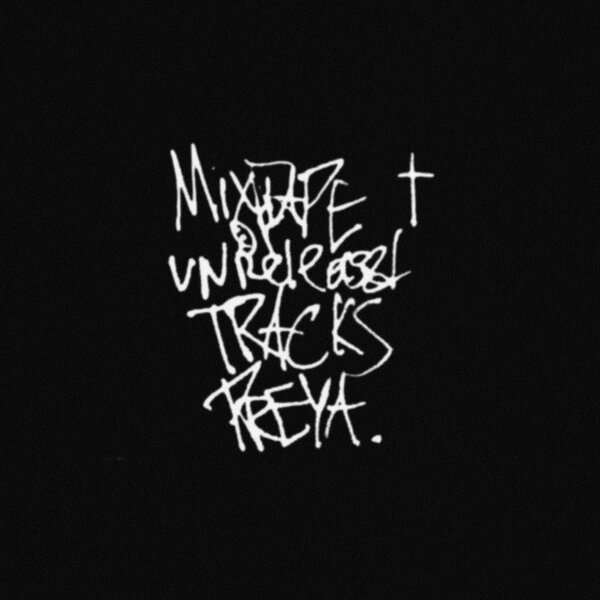 MixTAPE +
unReleased
TRACKS
RREYA.